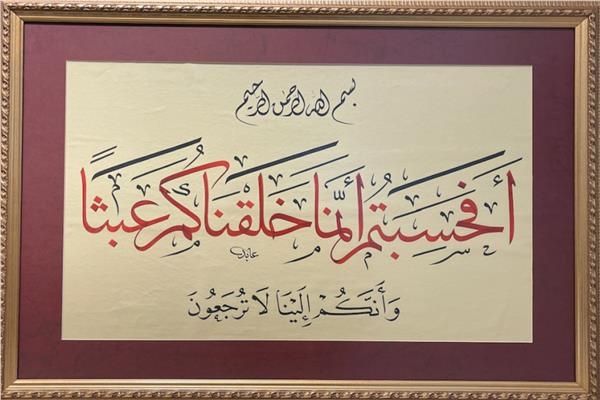 بسم الله الرحمن الرحيم
أَفَحَسِبْتُمْ أَنَّمَا خَلَقْنَاكُمْ عَبَثًا
عابد
وَأَنَّكُمْ إِلَيْنَا لَا تُرْجَعُونَ